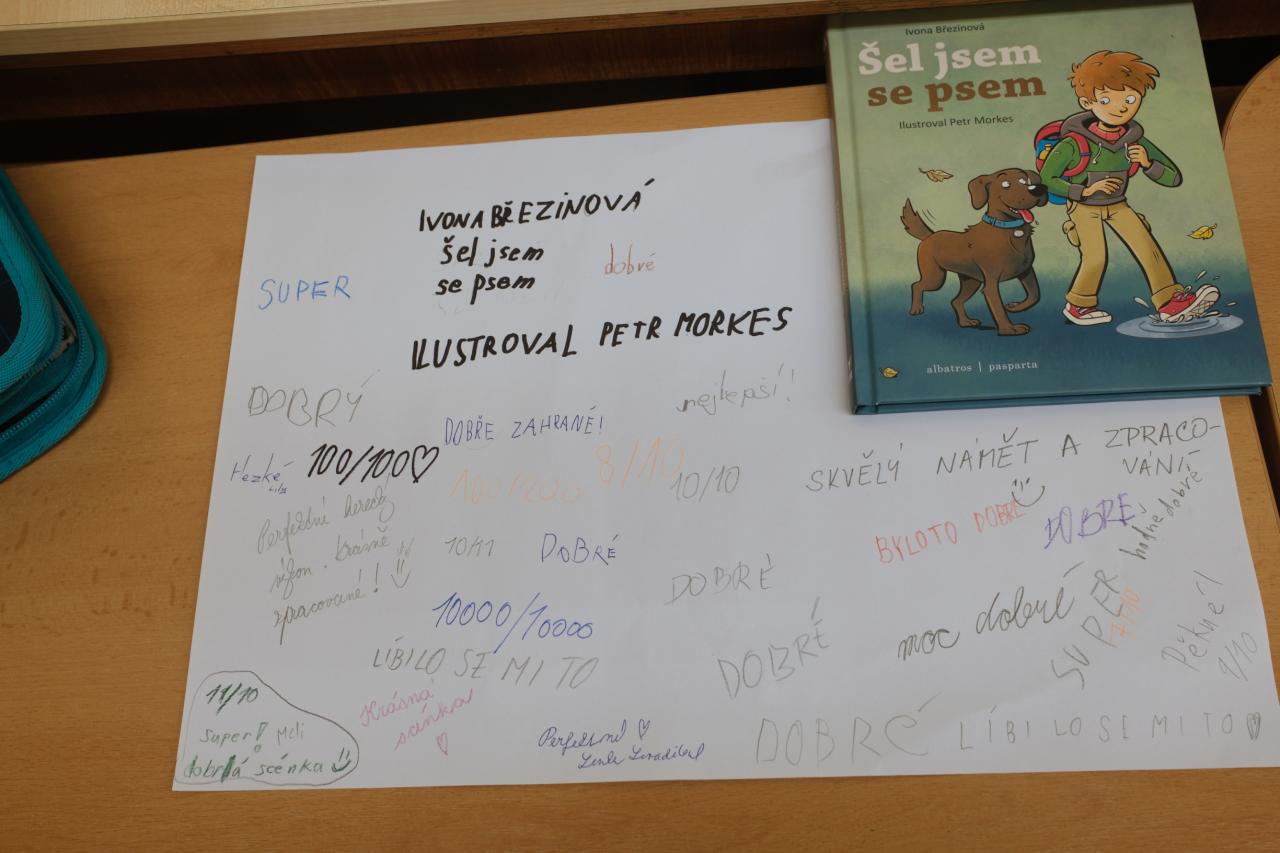 Ivona Březinová
Šel jsem
se psem
Ilustroval Petr Morkes
albatros | pasparta
IVONA BŘEZINOVÁ
Šel jsem
se psem
dobré
SUPER
ILUSTROVAL PETR MORKES
DOBRÝ
nejlepší!
DOBŘE ZAHRANÉ!
Hezké
100/100♡
100/200
8/10
10/10
SKVĚLÝ NÁMĚT A ZPRACO-
VÁNÍ
Perfektní herecký
výkon. Krásně
zpracované!
10/11
DOBRÉ
BYLO TO DOBRÉ
DOBRÉ
hodně dobré
DOBRÉ
10000/10000
moc dobré
SUPER
7/10
Pěkné!
1/10
LÍBILO SE MI TO
DOBRÉ
11/10
super! Měli
dobrá scénka
Krásná
scénka
♡
Perfektní ♡
DOBRÉ
LÍBILO SE MI TO ♡